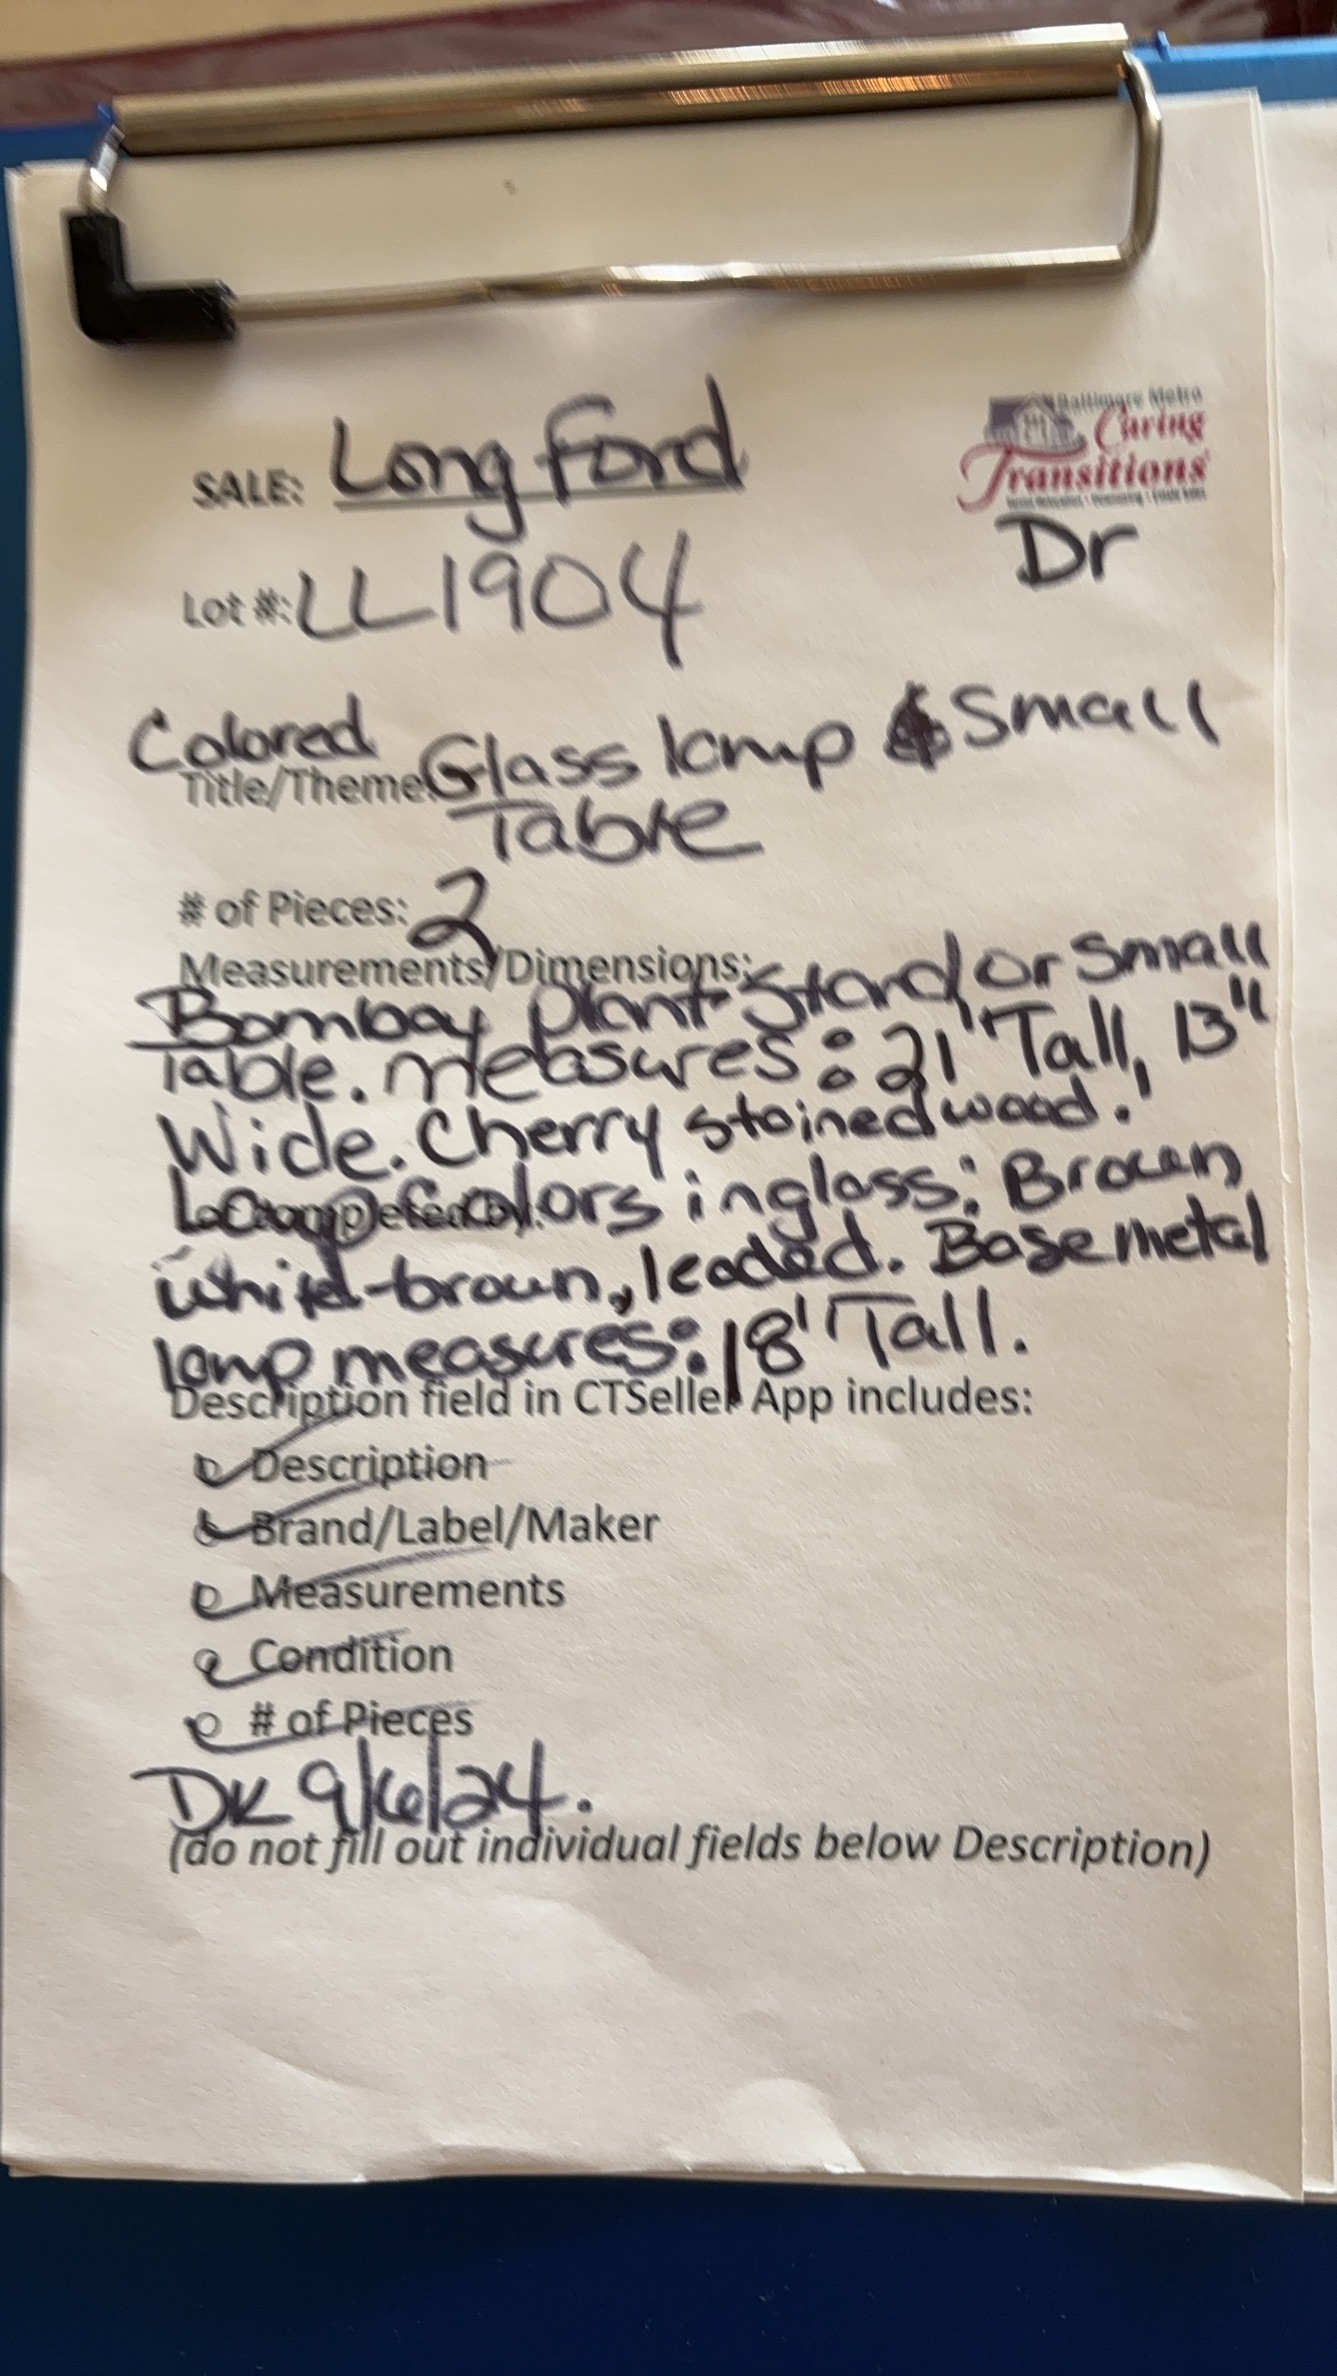 Baltimore Metro
Caring
Transitions
SALE: Longford
Dr
Lot #: LL1904
Colored Glass lamp & Small
Title/Theme:
Table
# of Pieces: 2
Measurements/Dimensions:
Bombay plant stand or small
Table. Measures: 21" Tall, 13"
Wide. Cherry stained wood.
Lamp colors in glass: Brown
white-brown, leaded. Base metal
lamp measures: 18' Tall.
Description field in CTSeller App includes:
Description
Brand/Label/Maker
Measurements
Condition
# of Pieces
DK 9/6/24.
(do not fill out individual fields below Description)